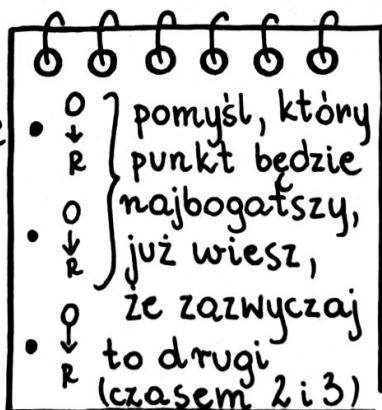 • O ↓ R
• O ↓ R
• O ↓ R
pomyśl, który
punkt będzie
najbogatszy,
już wiesz,
że zazwyczaj
to drugi
(czasem 2 i 3)